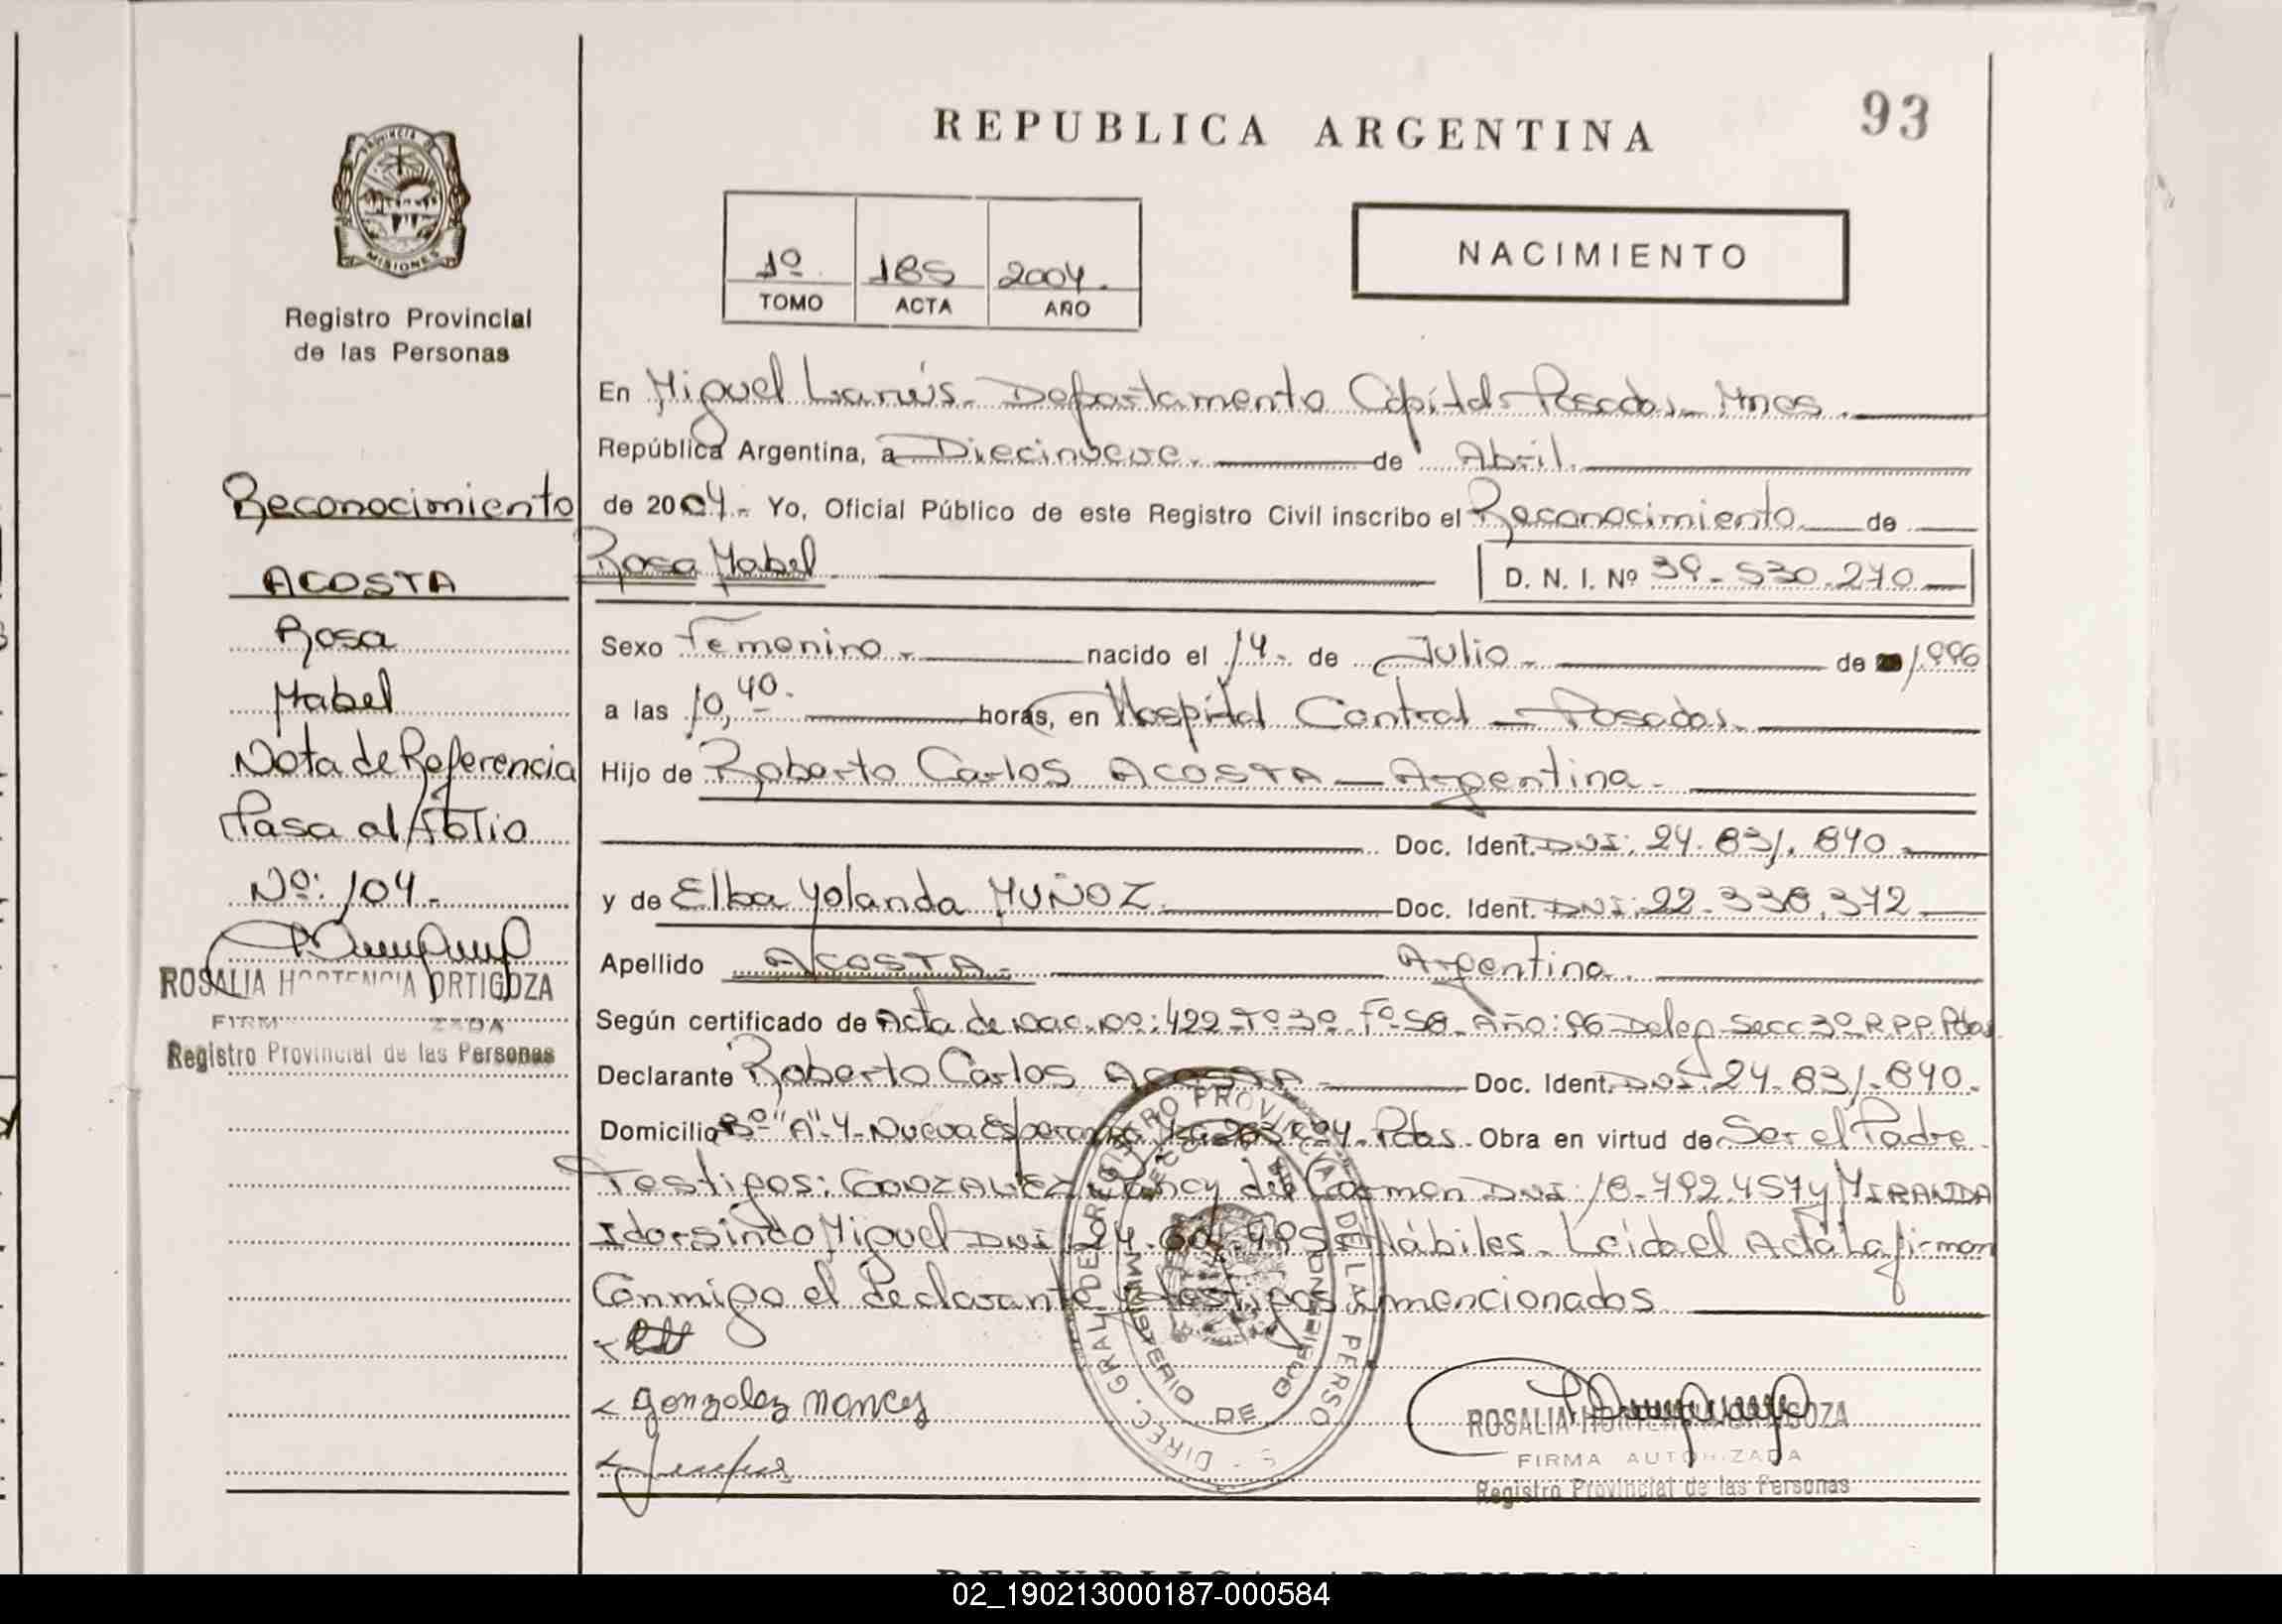 REPUBLICA ARGENTINA
93
PROVINCIA DE
MISIONES
Registro Provincial
de las Personas
1º 185 2004.
TOMO ACTA AÑO
NACIMIENTO
Reconocimiento
ACOSTA
Rosa
Mabel
Nota de Referencia
Pasa al folio
Nº: 104.-
ROSALIA HORTENCIA ORTIGOZA
Registro Provincial de las Personas
En Miguel Lanús - Departamento Capital - Posadas - Mnes.
República Argentina, a Diecinueve. de Abril.
de 2004.- Yo, Oficial Público de este Registro Civil inscribo el Reconocimiento de
Rosa Mabel
D. N. I. Nº 39-530.270
Sexo Femenino.- nacido el 14. de Julio - de 1.996
a las 10,40. horas, en Hospital Central - Posadas.
Hijo de Roberto Carlos ACOSTA - Argentina.
Doc. Ident. DNI: 24.831.840
y de Elba Yolanda MUÑOZ. Doc. Ident. DNI: 22.338.372
Apellido ACOSTA.- Argentina.
Según certificado de Acta de nac. nº: 422-Tº3º Fº-58-Año: 96-Deleg-Secc 3º R.P.P. Pdas
Declarante Roberto Carlos ACOSTA Doc. Ident. DNI: 24-831-840.
Domicilio Bº "A"-4-Nueva Esperanza Pdas. Obra en virtud de Ser el Padre
Testigos: GONZALEZ Nancy del Carmen DNI: 18-792.457 y MIRANDA
Idorsindo Miguel DNI 24. Hábiles. Leída el Acta La firman
Conmigo el Declarante y testigos mencionados
gonzalez nancy
DIREC. GRAL. DE REGISTRO PROVINCIAL DE LAS PERSONAS
MINISTERIO DE GOBIERNO
ROSALIA HORTENCIA ORTIGOZA
FIRMA AUTORIZADA
Registro Provincial de las Personas
REPUBLICA ARGENTINA
02_190213000187-000584